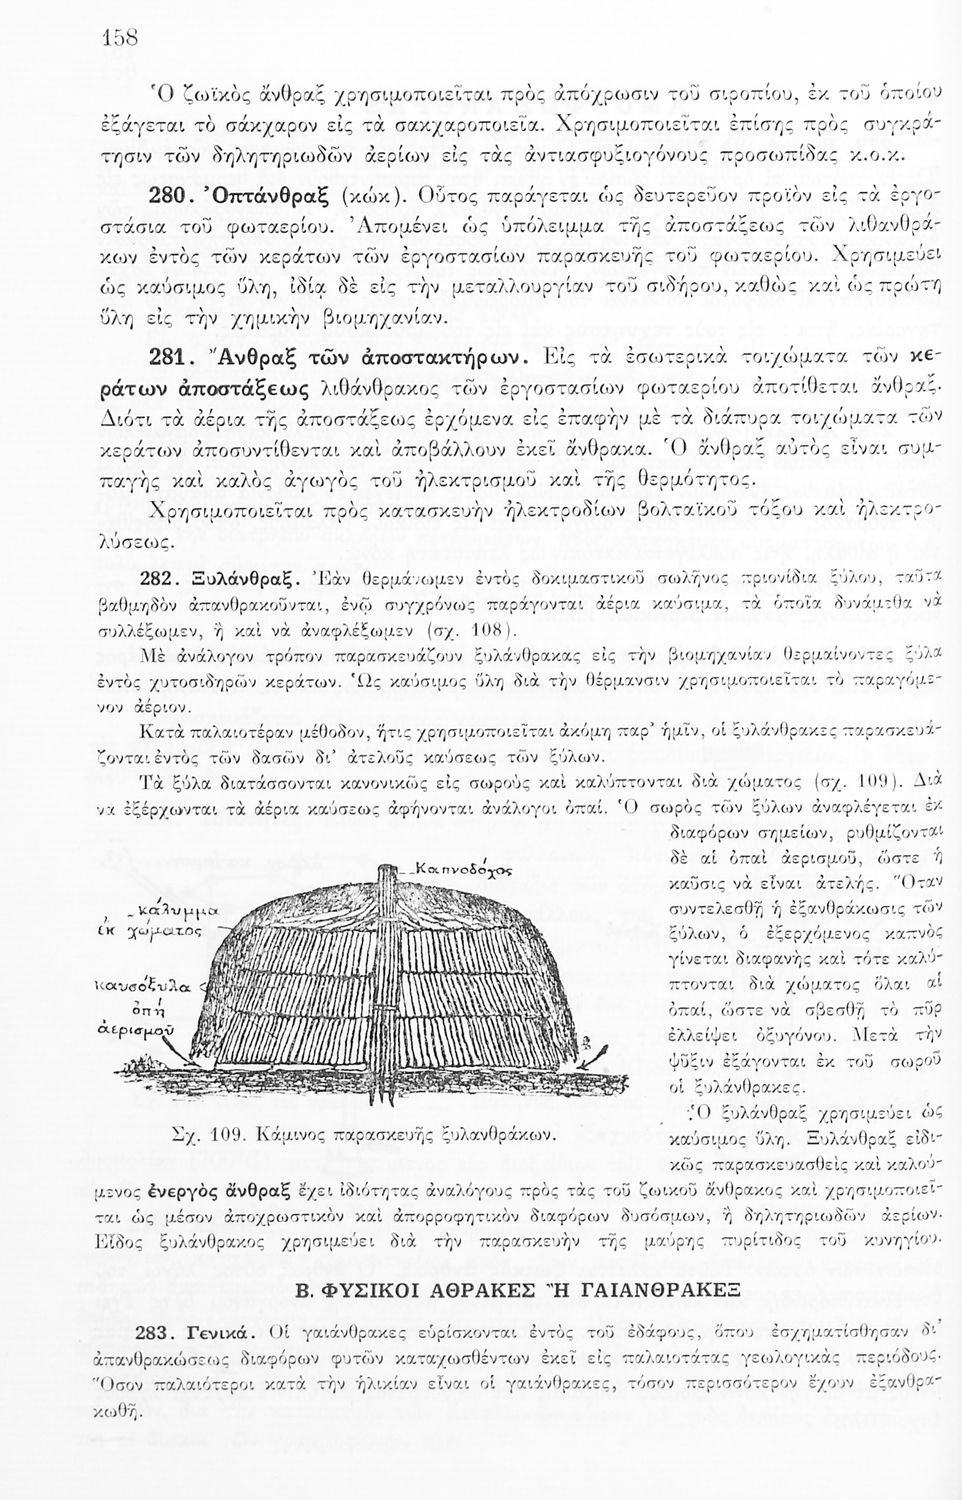 158
Ὁ ζωϊκὸς ἄνθραξ χρησιμοποιεῖται πρὸς ἀπόχρωσιν τοῦ σιροπίου, ἐκ τοῦ ὁποίου
ἐξάγεται τὸ σάκχαρον εἰς τὰ σακχαροποιεῖα. Χρησιμοποιεῖται ἐπίσης πρὸς συγκρά-
τησιν τῶν δηλητηριωδῶν ἀερίων εἰς τὰς ἀντιασφυξιογόνους προσωπίδας κ.ο.κ.
280. Ὀπτάνθραξ (κώκ). Οὗτος παράγεται ὡς δευτερεῦον προϊὸν εἰς τὰ ἐργο-
στάσια τοῦ φωταερίου. Ἀπομένει ὡς ὑπόλειμμα τῆς ἀποστάξεως τῶν λιθανθρά-
κων ἐντὸς τῶν κεράτων τῶν ἐργοστασίων παρασκευῆς τοῦ φωταερίου. Χρησιμεύει
ὡς καύσιμος ὕλη, ἰδίᾳ δὲ εἰς τὴν μεταλλουργίαν τοῦ σιδήρου, καθὼς καὶ ὡς πρώτη
ὕλη εἰς τὴν χημικὴν βιομηχανίαν.
281. Ἄνθραξ τῶν ἀποστακτήρων. Εἰς τὰ ἐσωτερικὰ τοιχώματα τῶν κε-
ράτων ἀποστάξεως λιθάνθρακος τῶν ἐργοστασίων φωταερίου ἀποτίθεται ἄνθραξ.
Διότι τὰ ἀέρια τῆς ἀποστάξεως ἐρχόμενα εἰς ἐπαφὴν μὲ τὰ διάπυρα τοιχώματα τῶν
κεράτων ἀποσυντίθενται καὶ ἀποβάλλουν ἐκεῖ ἄνθρακα. Ὁ ἄνθραξ αὐτὸς εἶναι συμ-
παγὴς καὶ καλὸς ἀγωγὸς τοῦ ἠλεκτρισμοῦ καὶ τῆς θερμότητος.
Χρησιμοποιεῖται πρὸς κατασκευὴν ἠλεκτροδίων βολταϊκοῦ τόξου καὶ ἠλεκτρο-
λύσεως.
282. Ξυλάνθραξ. Ἐὰν θερμάνωμεν ἐντὸς δοκιμαστικοῦ σωλῆνος πριονίδια ξύλου, ταῦτα
βαθμηδὸν ἀπανθρακοῦνται, ἐνῷ συγχρόνως παράγονται ἀέρια καύσιμα, τὰ ὁποῖα δυνάμεθα νὰ
συλλέξωμεν, ἢ καὶ νὰ ἀναφλέξωμεν (σχ. 108).
Μὲ ἀνάλογον τρόπον παρασκευάζουν ξυλάνθρακας εἰς τὴν βιομηχανίαν θερμαίνοντες ξύλα
ἐντὸς χυτοσιδηρῶν κεράτων. Ὡς καύσιμος ὕλη διὰ τὴν θέρμανσιν χρησιμοποιεῖται τὸ παραγόμε-
νον ἀέριον.
Κατὰ παλαιοτέραν μέθοδον, ἥτις χρησιμοποιεῖται ἀκόμη παρ' ἡμῖν, οἱ ξυλάνθρακες παρασκευά-
ζονται ἐντὸς τῶν δασῶν δι' ἀτελοῦς καύσεως τῶν ξύλων.
Τὰ ξύλα διατάσσονται κανονικῶς εἰς σωροὺς καὶ καλύπτονται διὰ χώματος (σχ. 109). Διὰ
νὰ ἐξέρχωνται τὰ ἀέρια καύσεως ἀφήνονται ἀνάλογοι ὀπαί. Ὁ σωρὸς τῶν ξύλων ἀναφλέγεται ἐκ
διαφόρων σημείων, ρυθμίζονται
δὲ αἱ ὀπαὶ ἀερισμοῦ, ὥστε ἡ
καῦσις νὰ εἶναι ἀτελής. Ὅταν
συντελεσθῇ ἡ ἐξανθράκωσις τῶν
ξύλων, ὁ ἐξερχόμενος καπνὸς
γίνεται διαφανὴς καὶ τότε καλύ-
πτονται διὰ χώματος ὅλαι αἱ
ὀπαί, ὥστε νὰ σβεσθῇ τὸ πῦρ
ἐλλείψει ὀξυγόνου. Μετὰ τὴν
ψῦξιν ἐξάγονται ἐκ τοῦ σωροῦ
οἱ ξυλάνθρακες.
Καπνοδόχος
κάλυμμα
ἐκ χώματος
καυσόξυλα
ὀπὴ
ἀερισμοῦ
Σχ. 109. Κάμινος παρασκευῆς ξυλανθράκων.
Ὁ ξυλάνθραξ χρησιμεύει ὡς
καύσιμος ὕλη. Ξυλάνθραξ εἰδι-
κῶς παρασκευασθεὶς καὶ καλού-
μενος ἐνεργὸς ἄνθραξ ἔχει ἰδιότητας ἀναλόγους πρὸς τὰς τοῦ ζωικοῦ ἄνθρακος καὶ χρησιμοποιεῖ-
ται ὡς μέσον ἀποχρωστικὸν καὶ ἀπορροφητικὸν διαφόρων δυσόσμων, ἢ δηλητηριωδῶν ἀερίων.
Εἶδος ξυλάνθρακος χρησιμεύει διὰ τὴν παρασκευὴν τῆς μαύρης πυρίτιδος τοῦ κυνηγίου.
Β. ΦΥΣΙΚΟΙ ΑΘΡΑΚΕΣ Ἢ ΓΑΙΑΝΘΡΑΚΕΞ
283. Γενικά. Οἱ γαιάνθρακες εὑρίσκονται ἐντὸς τοῦ ἐδάφους, ὅπου ἐσχηματίσθησαν δι'
ἀπανθρακώσεως διαφόρων φυτῶν καταχωσθέντων ἐκεῖ εἰς παλαιοτάτας γεωλογικὰς περιόδους.
Ὅσον παλαιότεροι κατὰ τὴν ἡλικίαν εἶναι οἱ γαιάνθρακες, τόσον περισσότερον ἔχουν ἐξανθρα-
κωθῆ.